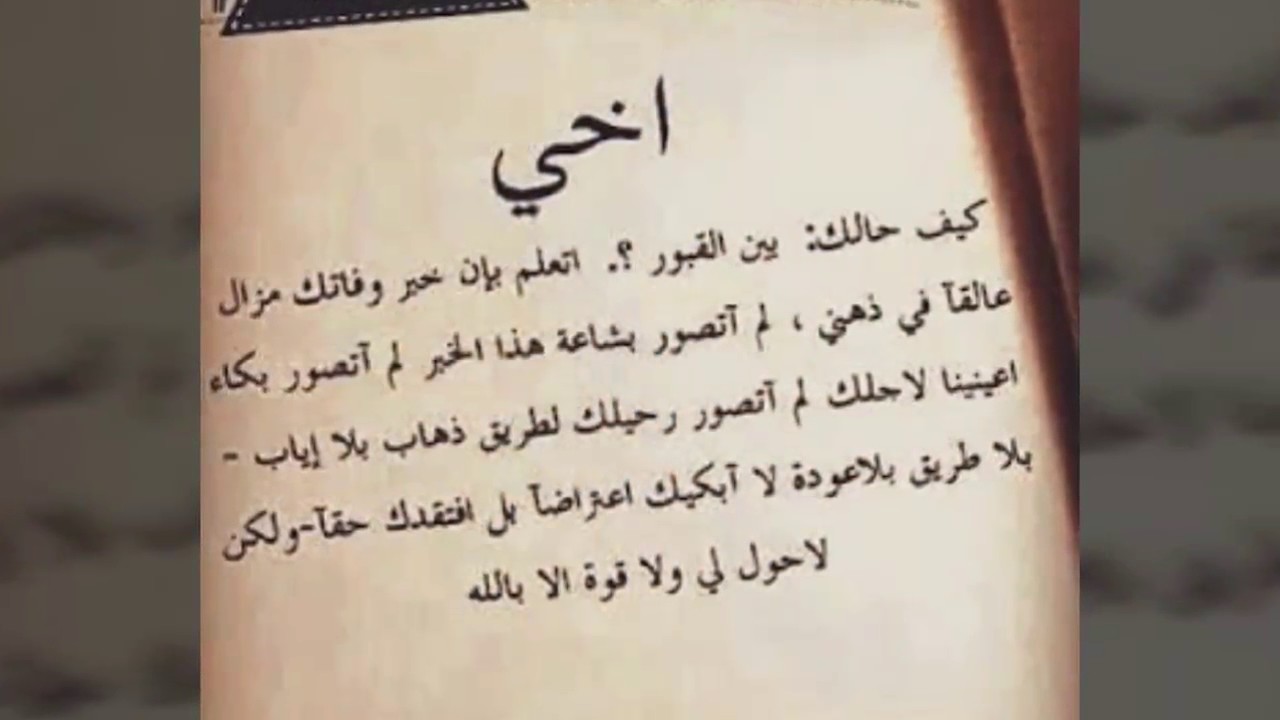 اخي
كيف حالك: بين القبور ؟. اتعلم بإن خبر وفاتك مزال
عالقآ في ذهني ، لم آتصور بشاعة هذا الخبر لم آتصور بكاء
اعيننا لاحلك لم آتصور رحيلك لطريق ذهاب بلا إياب -
بلا طريق بلاعودة لا آبكيك اعتراضآ بل افتقدك حقآ-ولكن
لاحول لي ولا قوة الا بالله